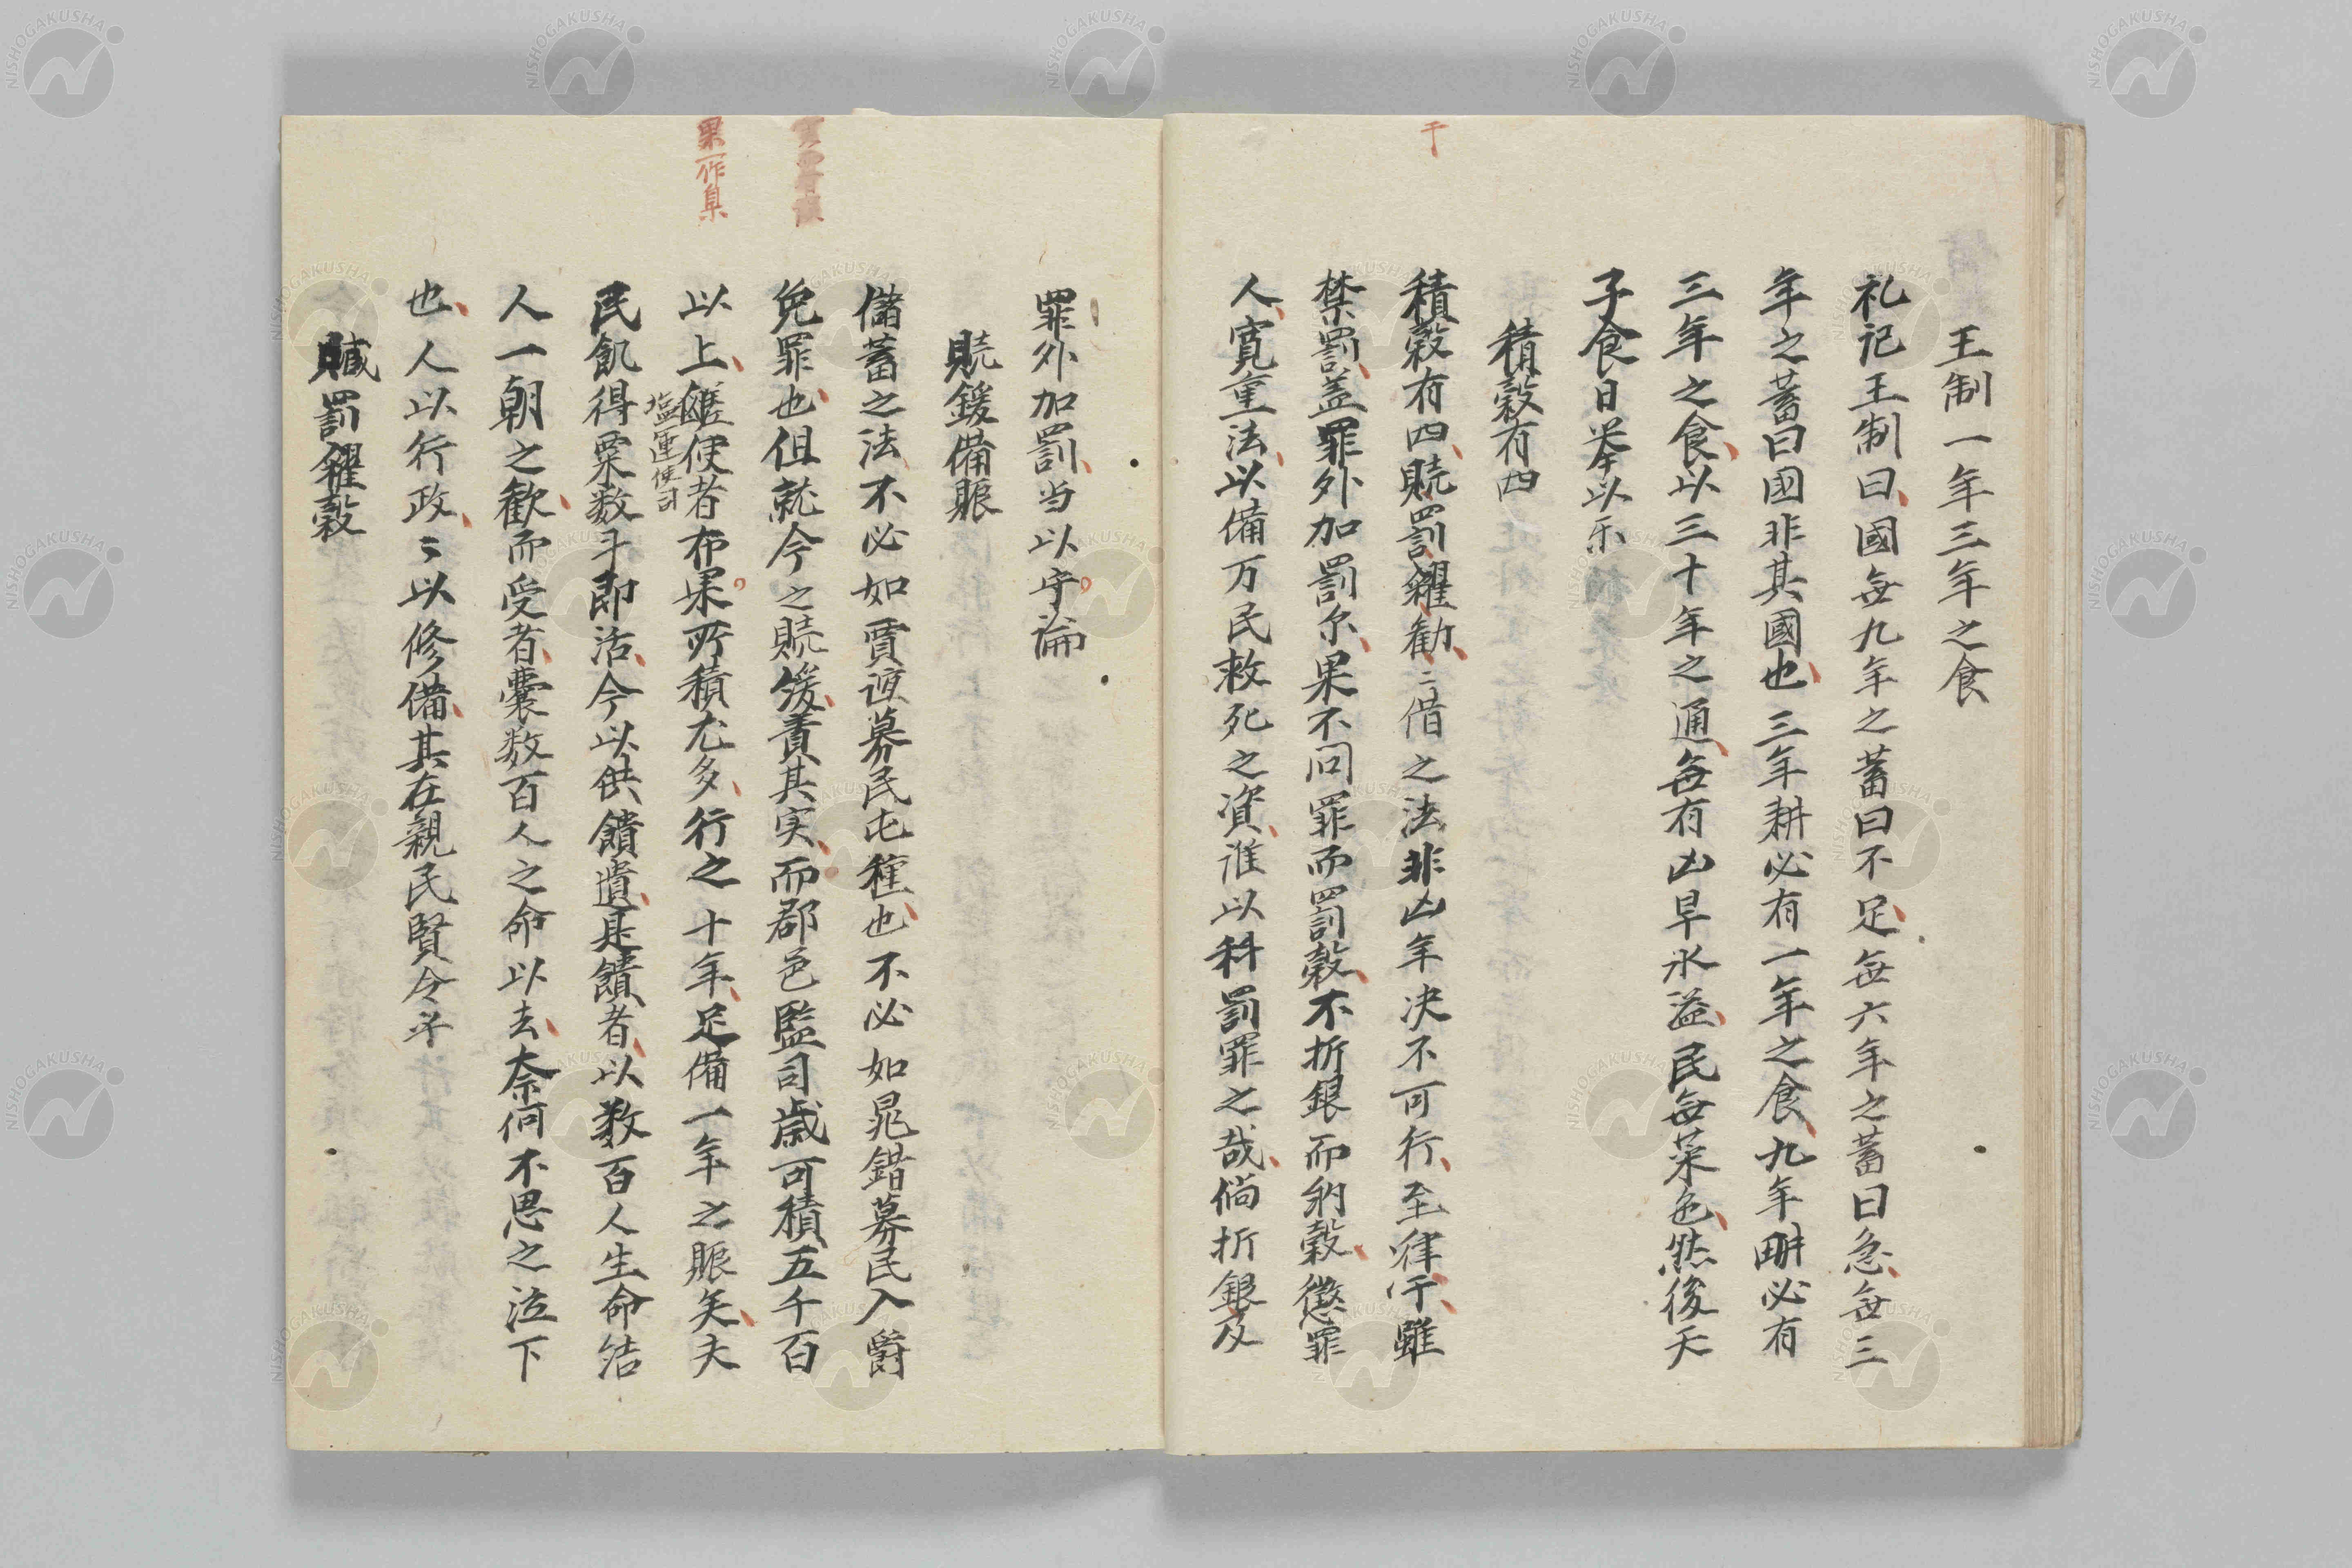 王制一年三年之食
礼記王制曰國每九年之蓄曰不足每六年之蓄曰急每三
年之蓄曰国非其國也三年耕必有一年之食九年畊必有
三年之食以三十年之通每有凶旱水溢民每菜色然後天
子食日举以乐
積穀有四
干
積穀有四贖罰糴勧〻借之法非凶年决不可行至律干雖
禁罰盖罪外加罰尔果不问罪而罰穀不折銀而納穀懲罪
人寛重法以備万民救死之資誰以科罰罪之哉倘折銀及
罪外加罰当以守論
贖鍰備賑
儲蓄之法不必如賈誼募民屯種也不必如晁錯募民入爵
免罪也但就今之贖鍰責其实而郡邑監司歳可積五千百
果一作臬
以上鹾使者布果所積尤多行之十年足備一年之賑矣夫
塩運使司
民飢得粟数斗即活今以供饋遺是饋者以数百人生命结
人一朝之歓而受者囊数百人之命以去奈何不思之泣下
也人以行政〻以修備其在親民賢令乎
贓罰糴穀
NISHOGAKUSHA